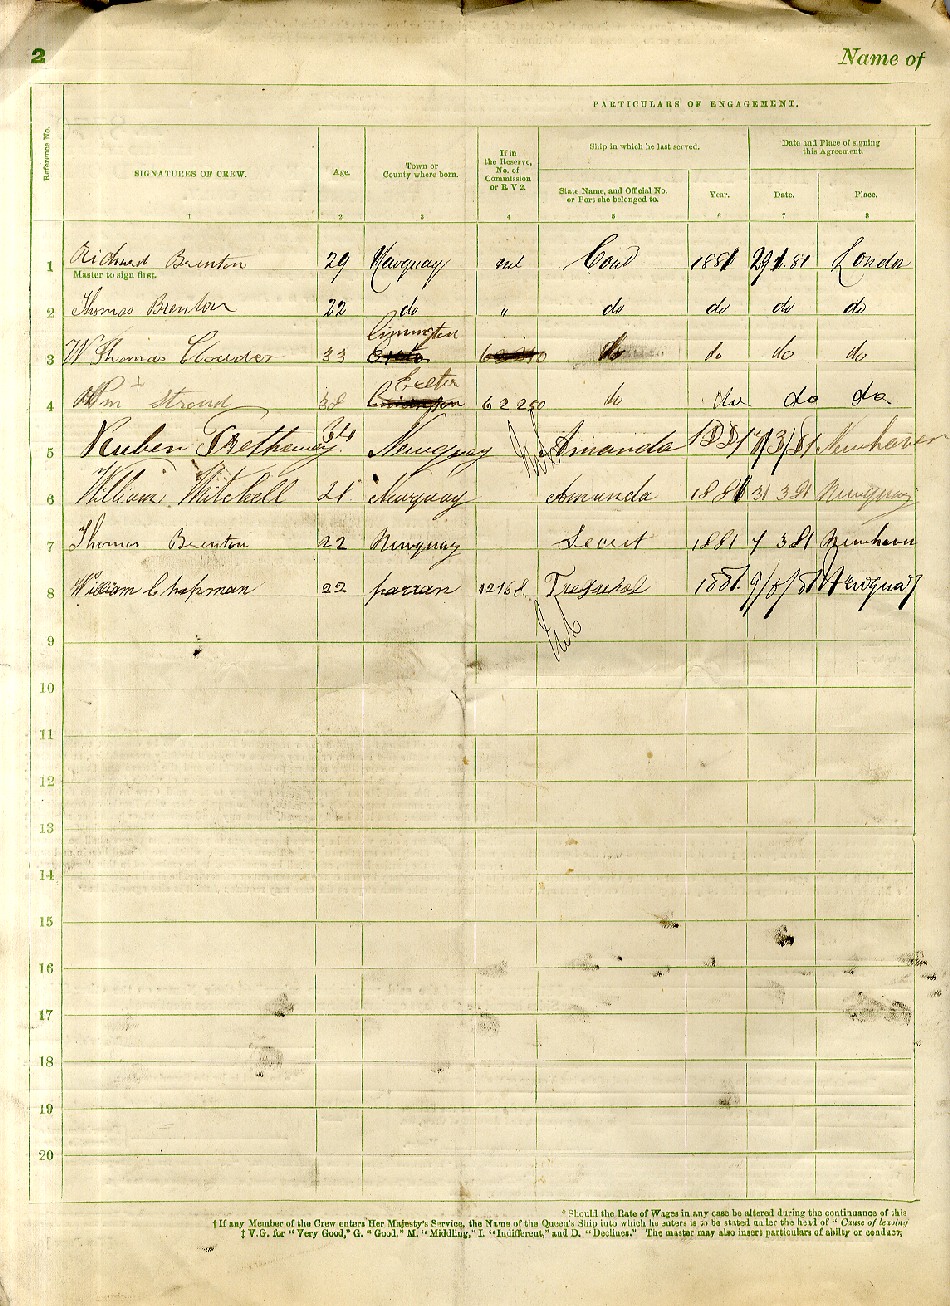 2 Name of
PARTICULARS OF ENGAGEMENT.
Reference No.
SIGNATURES OF CREW.
Age.
Town or
County where born.
If in
the Reserve,
No. of
Commission
or R.V 2.
Ship in which he last served.
State Name, and Official No.
or Port she belonged to.
Year.
Date and Place of signing
this Agreement.
Date.
Place.
1 2 3 4 5 6 7 8
1 Richard Brenton 29 Newquay nil 1881 29 1 81 London
Master to sign first.
2 Thomas Brenton 22 do " do do do do
Lymington
3 W Thomas 33 do do do do
Exeter
4 Wm Stroud 38 62250 do do do do
5 Reuben Trethewey 34 Newquay Amanda 1881 7/3/81 Newhaven
6 William Mitchell 21 Newquay Amanda 1881 31 3 81 Newquay
7 Thomas Brenton 22 Newquay 1881 7 3 81 Newhaven
8 William Chapman 22 parran 12168 1881 9/5/81 Newquay
9
10
11
12
13
14
15
16
17
18
19
20
* Should the Rate of Wages in any case be altered during the continuance of this
† If any Member of the Crew enters Her Majesty's Service, the Name of the Queen's Ship into which he enters is to be stated under the head of "Cause of leaving
‡ V.G. for "Very Good," G. "Good." M. "Middling," I. "Indifferent," and D. "Declines." The master may also insert particulars of ability or conduct,